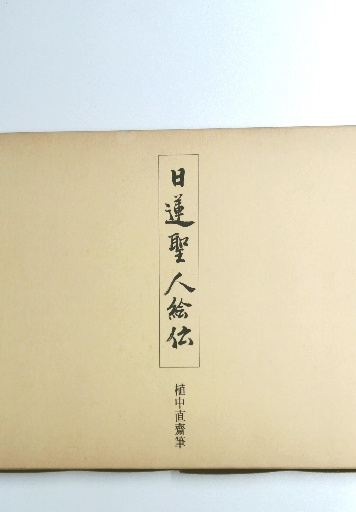 日蓮聖人絵伝
植中直齋筆